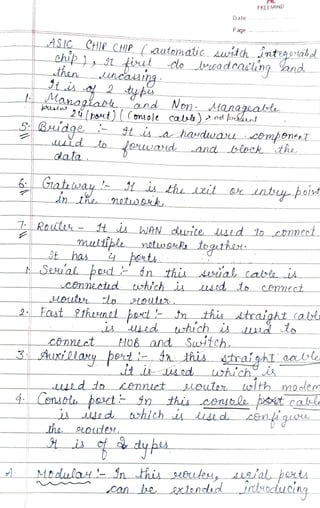 FREEMIND
Date
Page
ASIC CHIP CHIP (automatic switch integerated
chip), It first do broadcasting and
then uncasting.
It is of 2 types
1. Managable and Non-Manageable
present 24 (port) (console cable) → not present
5. Bridge :- It is a hardware component
used to forward and block the
data.
6. Gateway :- It is the exit or entry point
in the network.
7. Router - It is WAN device used to connect
multiple networks together.
It has 4 ports.
1. Serial port :- In this serial cable is
connected which is used to connect
router to router.
2. Fast Ethernet port :- In this straight cabl
is used which is used to
connect HUB and Switch.
3. Auxillary port :- In this straight cable
it is used which is
used to connect router with modem
4. Console port :- In this console port cable
is used which is used configure
the router.
It is of 2 types
A. Modular :- In this router, serial ports
can be extended introducing